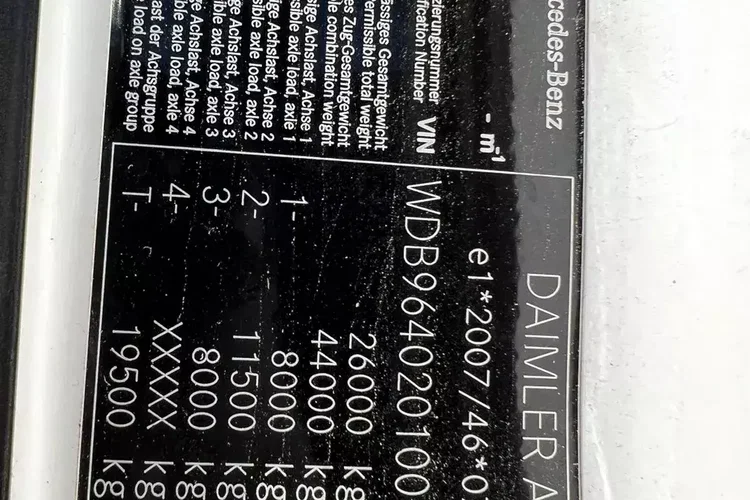 cedes-Benz
DAIMLER A
- m⁻¹ e1*2007/46*0
zierungsnummer
ification Number VIN WDB964020100
ässiges Gesamtgewicht
ermissible total weight 26000 kg
s Zug-Gesamtgewicht
le combination weight 44000 kg
sige Achslast, Achse 1
sible axle load, axle 1 1- 8000 kg
ige Achslast, Achse 2
sible axle load, axle 2 2- 11500 kg
ge Achslast, Achse 3
ible axle load, axle 3 3- 8000 kg
ge Achslast, Achse 4
ble axle load, axle 4 4- XXXXX kg
ast der Achsgruppe
load on axle group T- 19500 kg